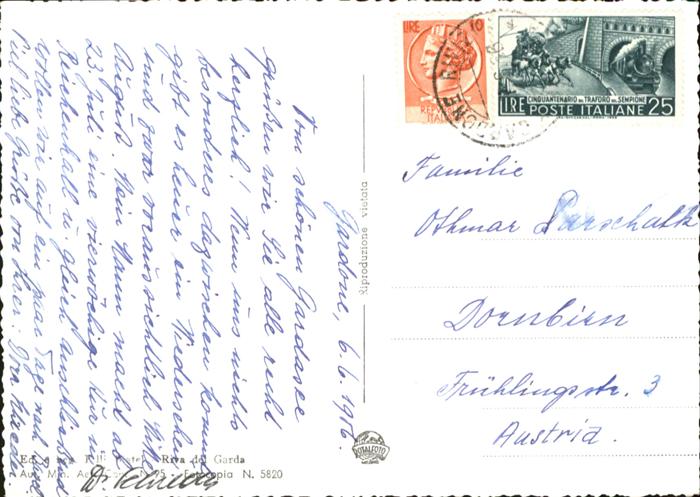 Gardone, 6.6.1956
Vom schönen Gardasee
grüßen wir Sie alle recht
herzlich! Wenn uns nichts
besonderes dazwischen kommt
gibt es heuer ein Wiedersehen
und zwar voraussichtlich Mitte
August. Mein Mann macht ab
23. Juli eine vierwöchige Kur in
Reichenhall u. gleich anschließend
wollen wir auf ein paar Tage nach
Grüße von Ihrer
Dr.
LIRE 10
ITALIANA
GARDONE RIVIERA
CINQUANTENARIO DEL TRAFORO DEL SEMPIONE
LIRE POSTE ITALIANE 25
Riproduzione vietata
Familie
Othmar Parschalk
Dornbirn
Frühlingstr. 3
Austria.
TOTALFOTO
MILANO
Riva del Garda
Fotocopia N. 5820